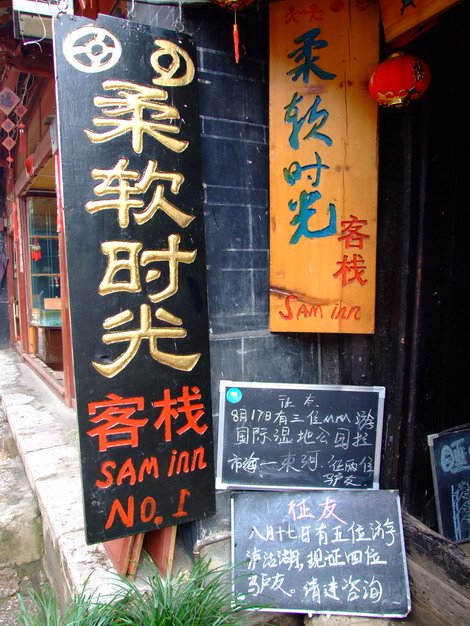 柔软时光
客栈
SAM inn
NO.1
柔软时光
客栈
SAM inn
征友.
8月17日有三位MM游
国际湿地公园拉
市海—束河.征两位
驴友.
征友
八月十七日有五位游
泸沽湖,现征四位
驴友。请进咨询